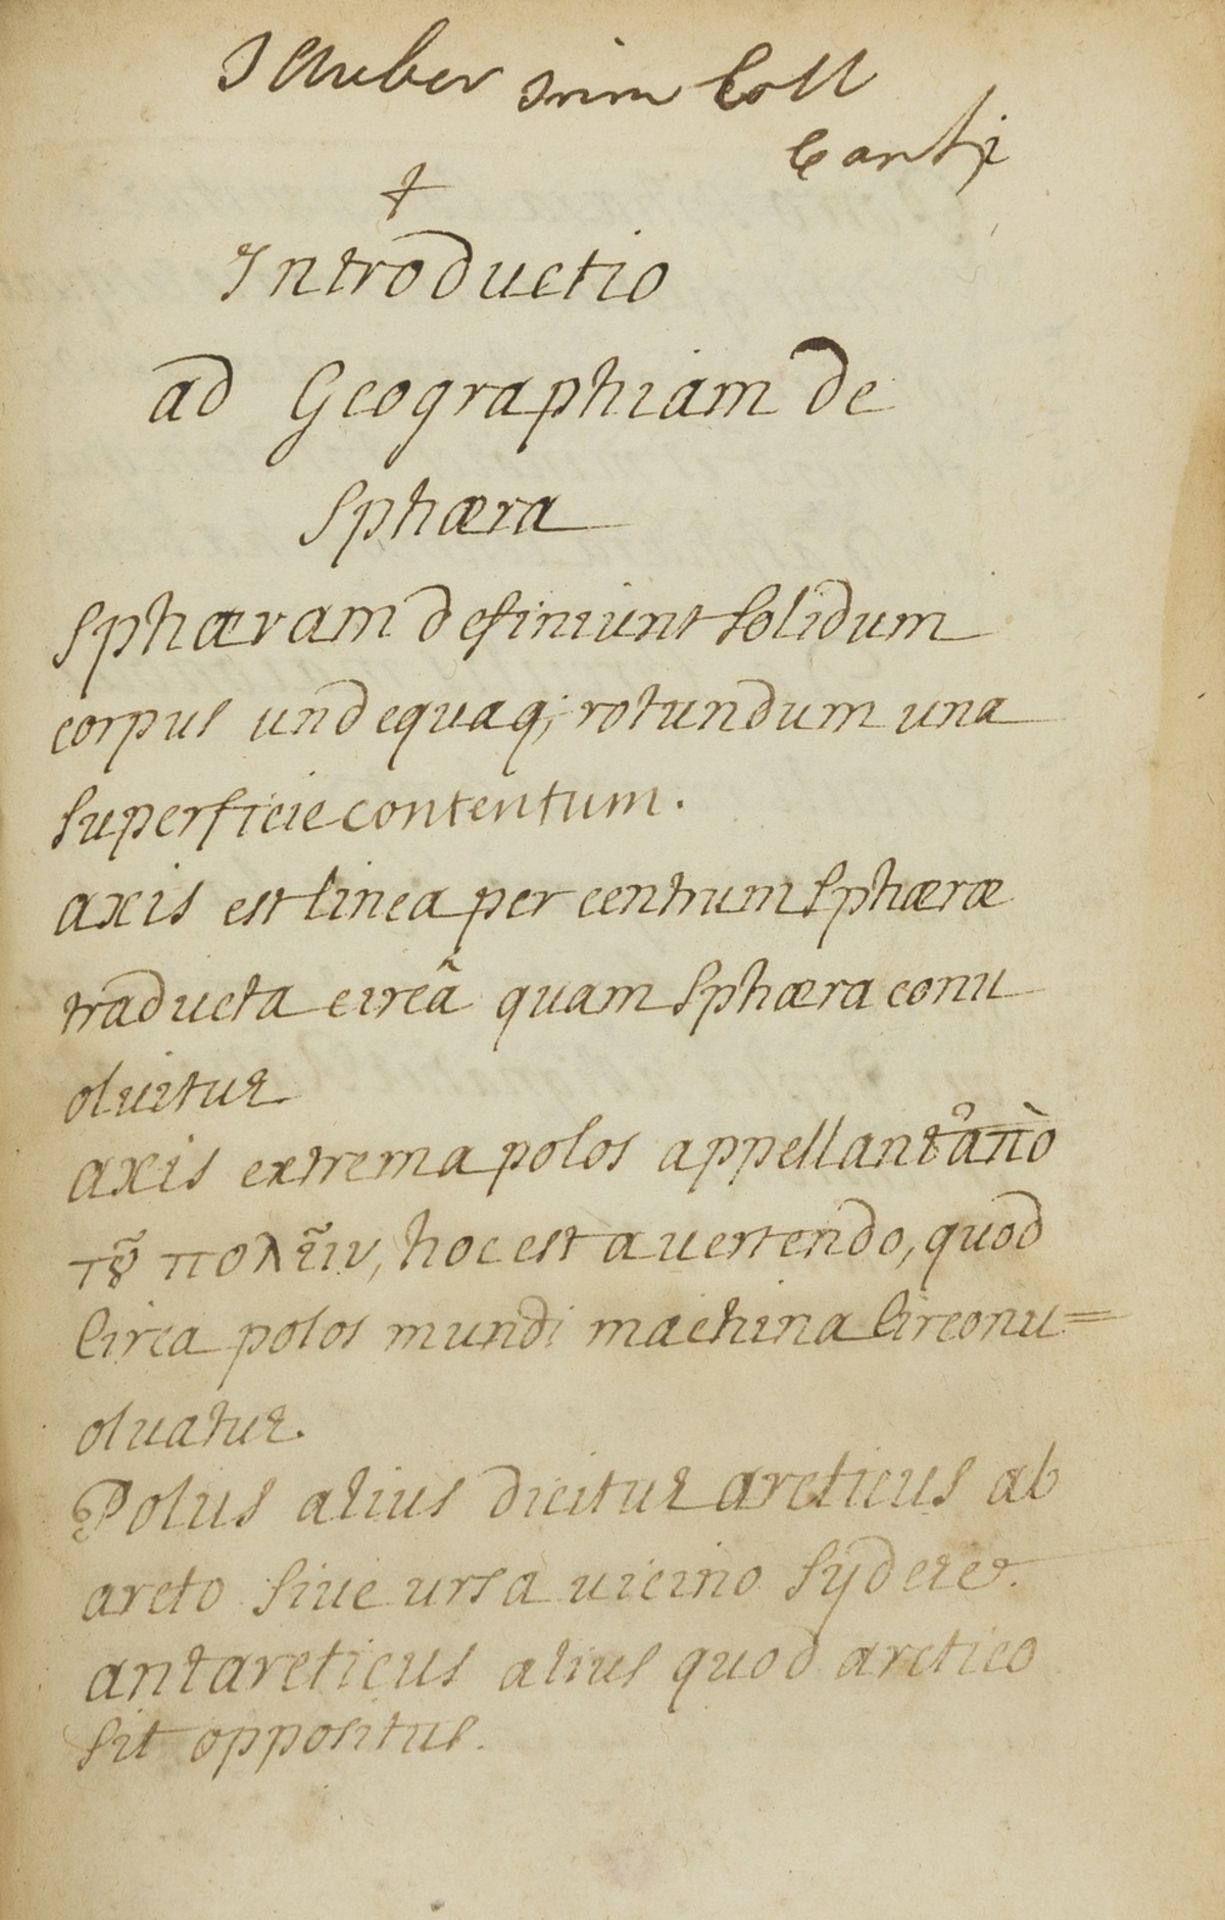 Trin Coll
Cant
Introductio
ad Geographiam de
Sphæra
Sphæram definiunt solidum
corpus undequaq; rotundum una
superficie contentum.
axis est linea per centrum sphæræ
traducta circâ quam sphæra conu
oluitur
axis extrema polos appellant ἀπὸ
τȣ͂ πολεῖν, hoc est a uertendo, quod
circa polos mundi machina circonu=
oluatur.
Polus alius dicitur arcticus ab
arcto siue ursa uicino sydere.
antarcticus alius quod arctico
sit oppositus.